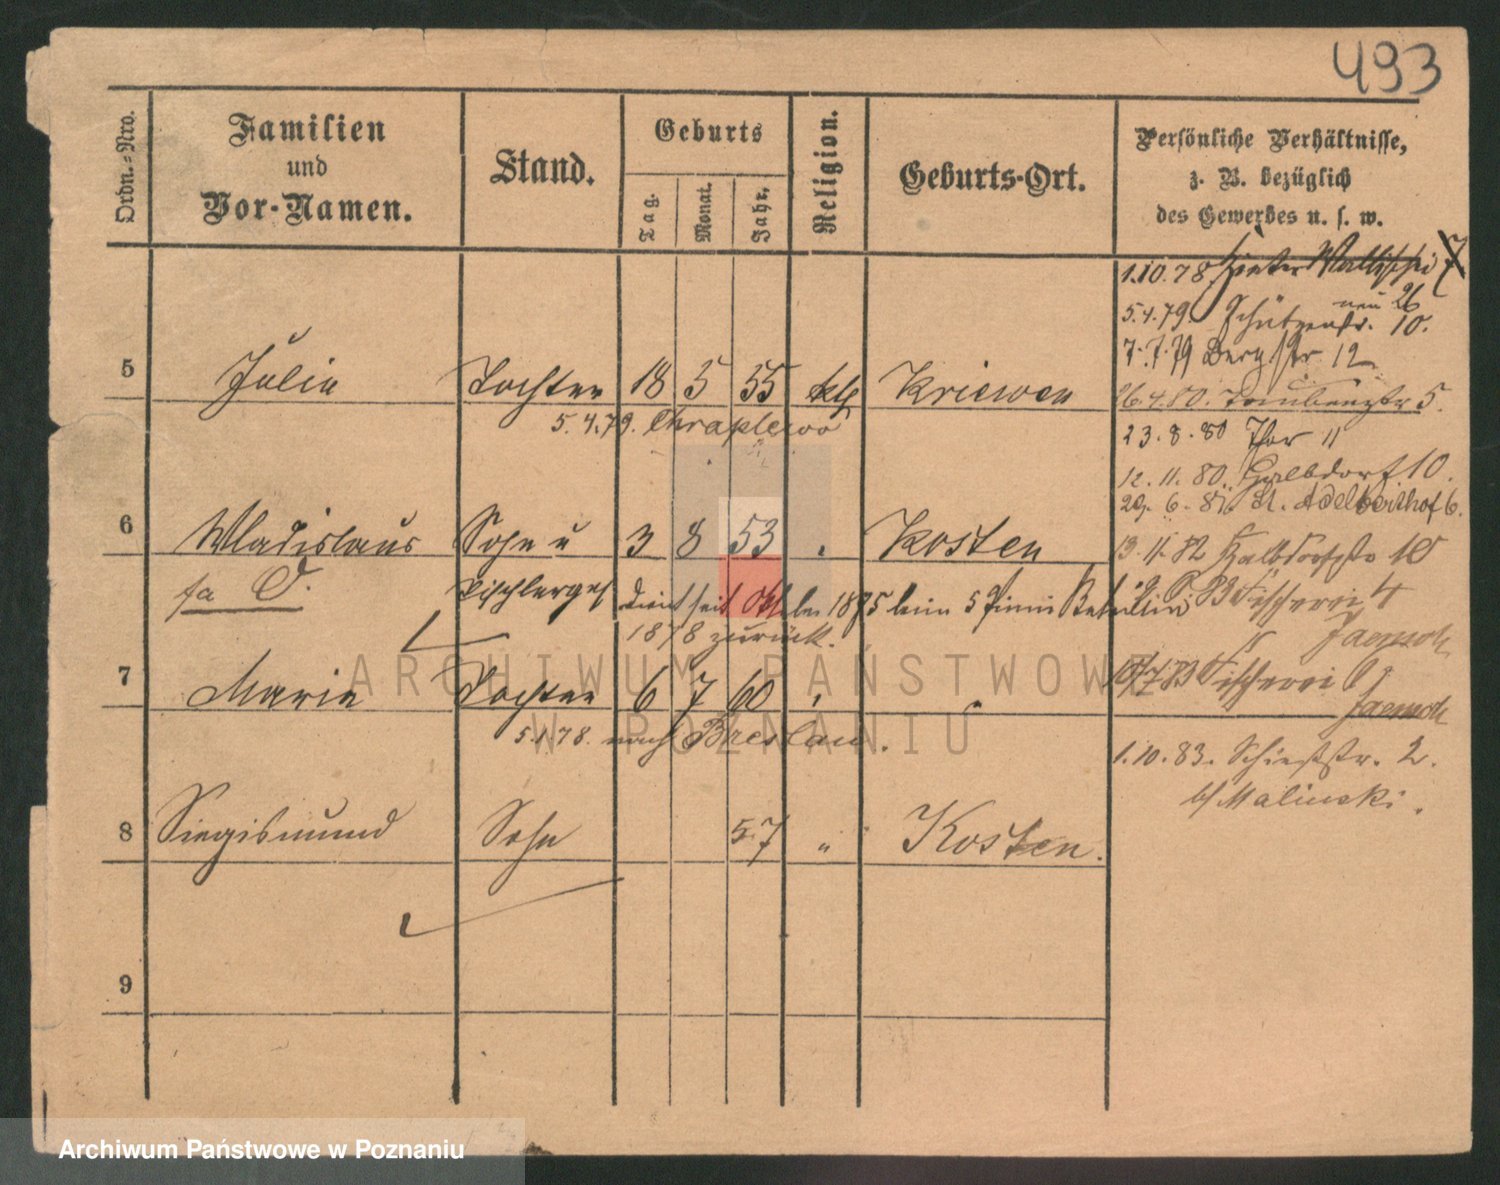 493
Ordn.=Nro.
Familien
und
Vor-Namen.
Stand.
Geburts
Tag.
Monat.
Jahr.
Religion.
Geburts-Ort.
Persönliche Verhältnisse,
z. B. bezüglich
des Gewerbes u. s. w.
1.10.78. Hinter Wallischei 7
5.4.79. Schützenstr. neu 26
10.
7.7.79 Bergstr 12
5 Julia Tochter 18 5 55 kth Kriewen
5.4.79. Chraplewo
26.4.80. 5.
23.8.80 Thor 11
12.11.80. Halbdorf 10.
29.6.81. St. Adelberthof 6.
6 Wladislaus Sohn u 3 8 53 " Kosten
13.11.82 Halbdorfstr 10
Tischlerges dient seit 1875 beim 5 Pionir Batallion
1878 zurück.
83 Fischerei 4
Jaensch
7 Marie Tochter 6 7 60 " "
7.83 Fischerei 9
Jaensch
5.1.78. nach Breslau.
1.10.83. Schießstr. 2.
b/ Malinski.
8 Siegismund Sohn 57 " Kosten.
9
ARCHIWUM PAŃSTWOWE
W POZNANIU
Archiwum Państwowe w Poznaniu